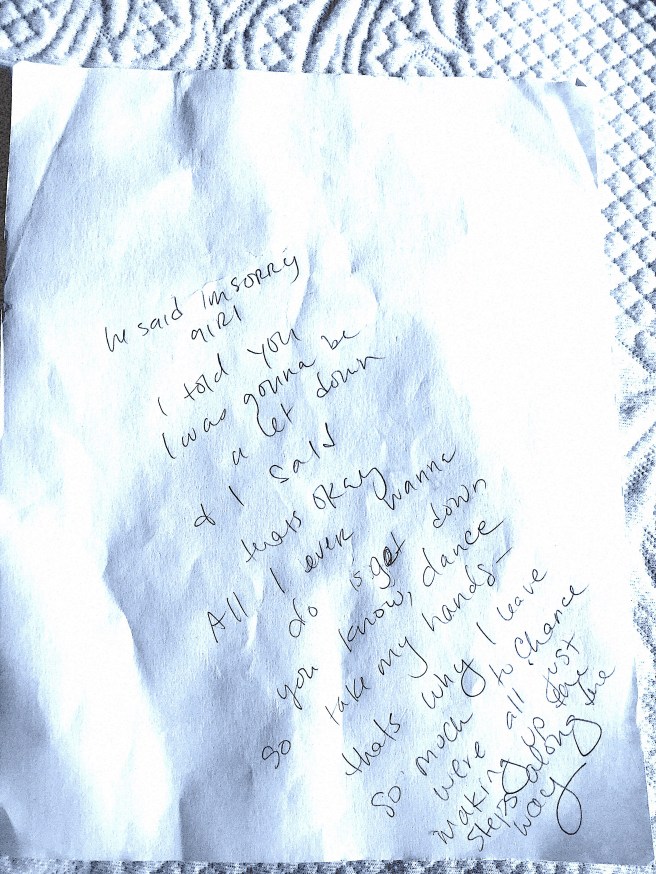 he said Im SORRY
giRl
I told you
I was gonna be
a let down
& I said
thats okay
All I ever wanna
do is get down
you know, dance
so take my hands-
thats why I leave
so much to chance
were all just
making up the
steps along the
way